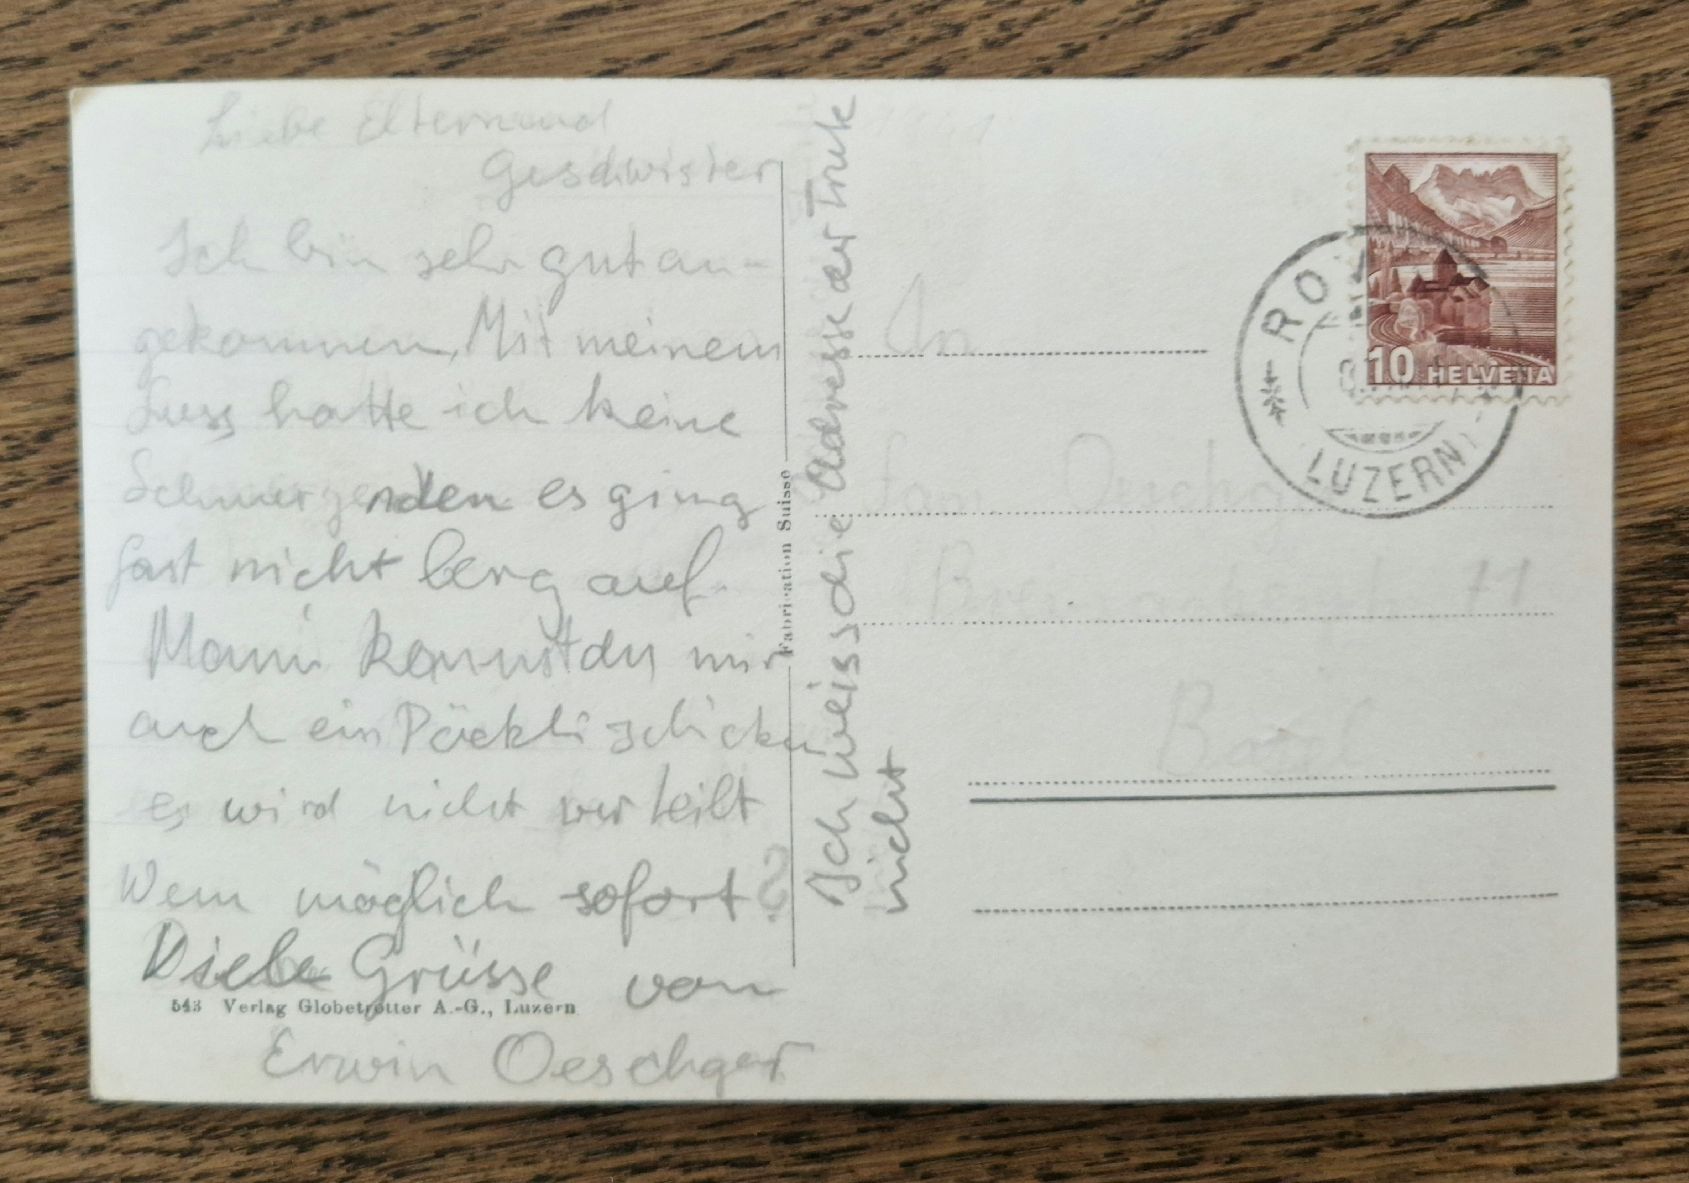 Liebe Eltern und
Geschwister
Ich bin sehr gut an-
gekommen, Mit meinem
Fuss hatte ich keine
Schmerzen den es ging
fast nicht berg auf.
Mami kannst du mir
auch ein Päckli schicken
es wird nicht verteilt
Wenn möglich sofort?
Viele Grüsse von
Erwin Oeschger
543 Verlag Globetrotter A.-G., Luzern
Fabrication Suisse
Ich weiss die Adresse der
nicht
An
Fam. Oeschger
11
Basel
10 HELVETIA
RO
(LUZERN)